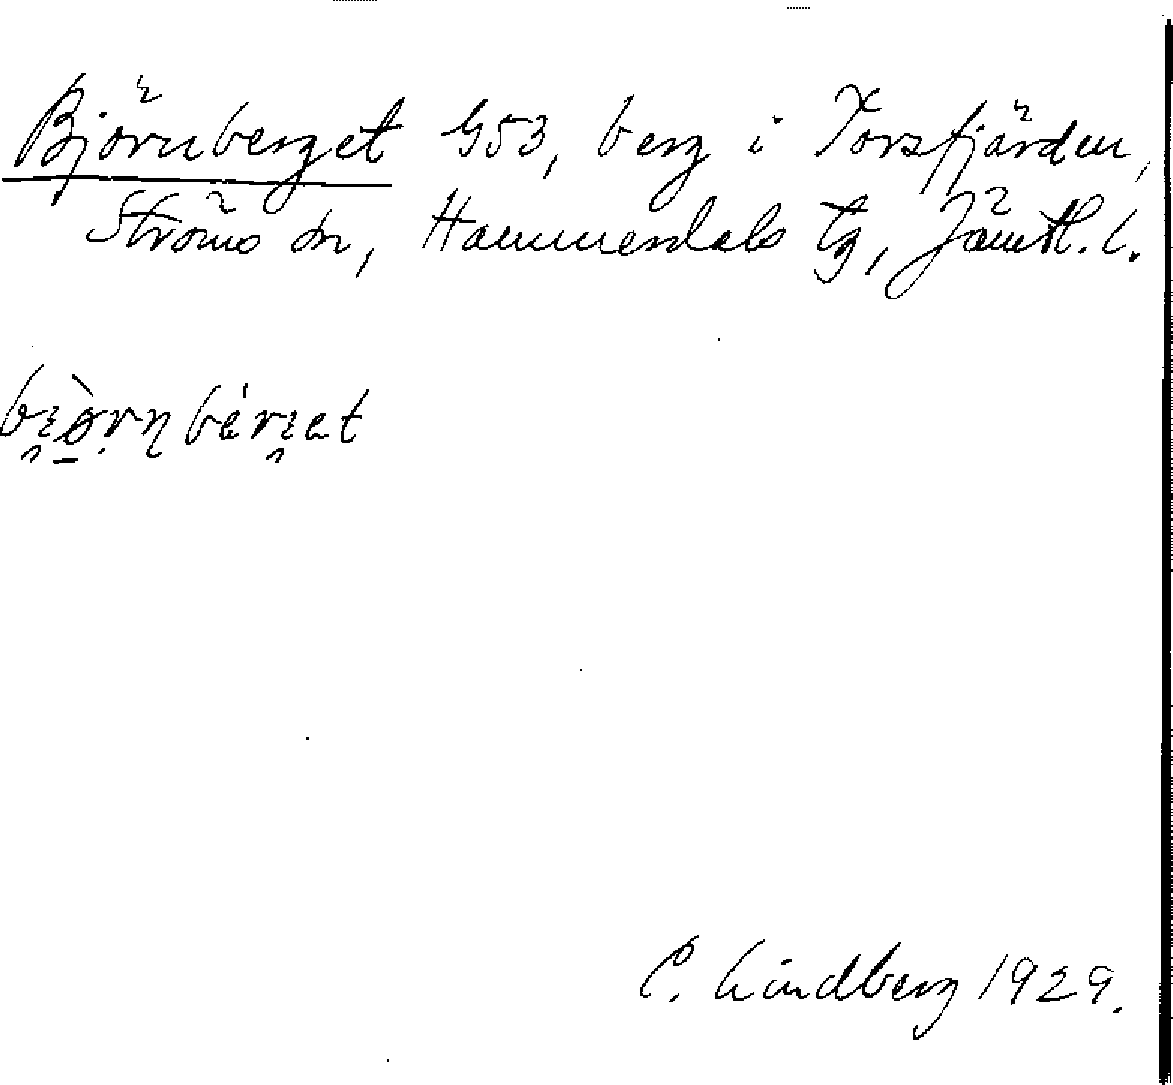 Björnberget G53, berg i Torsfjärden,
Ströms sn, Hammerdals tg, Jämtl. l.
bi̯ö̀rn bǽri̯et
C. Lindberg 1929.